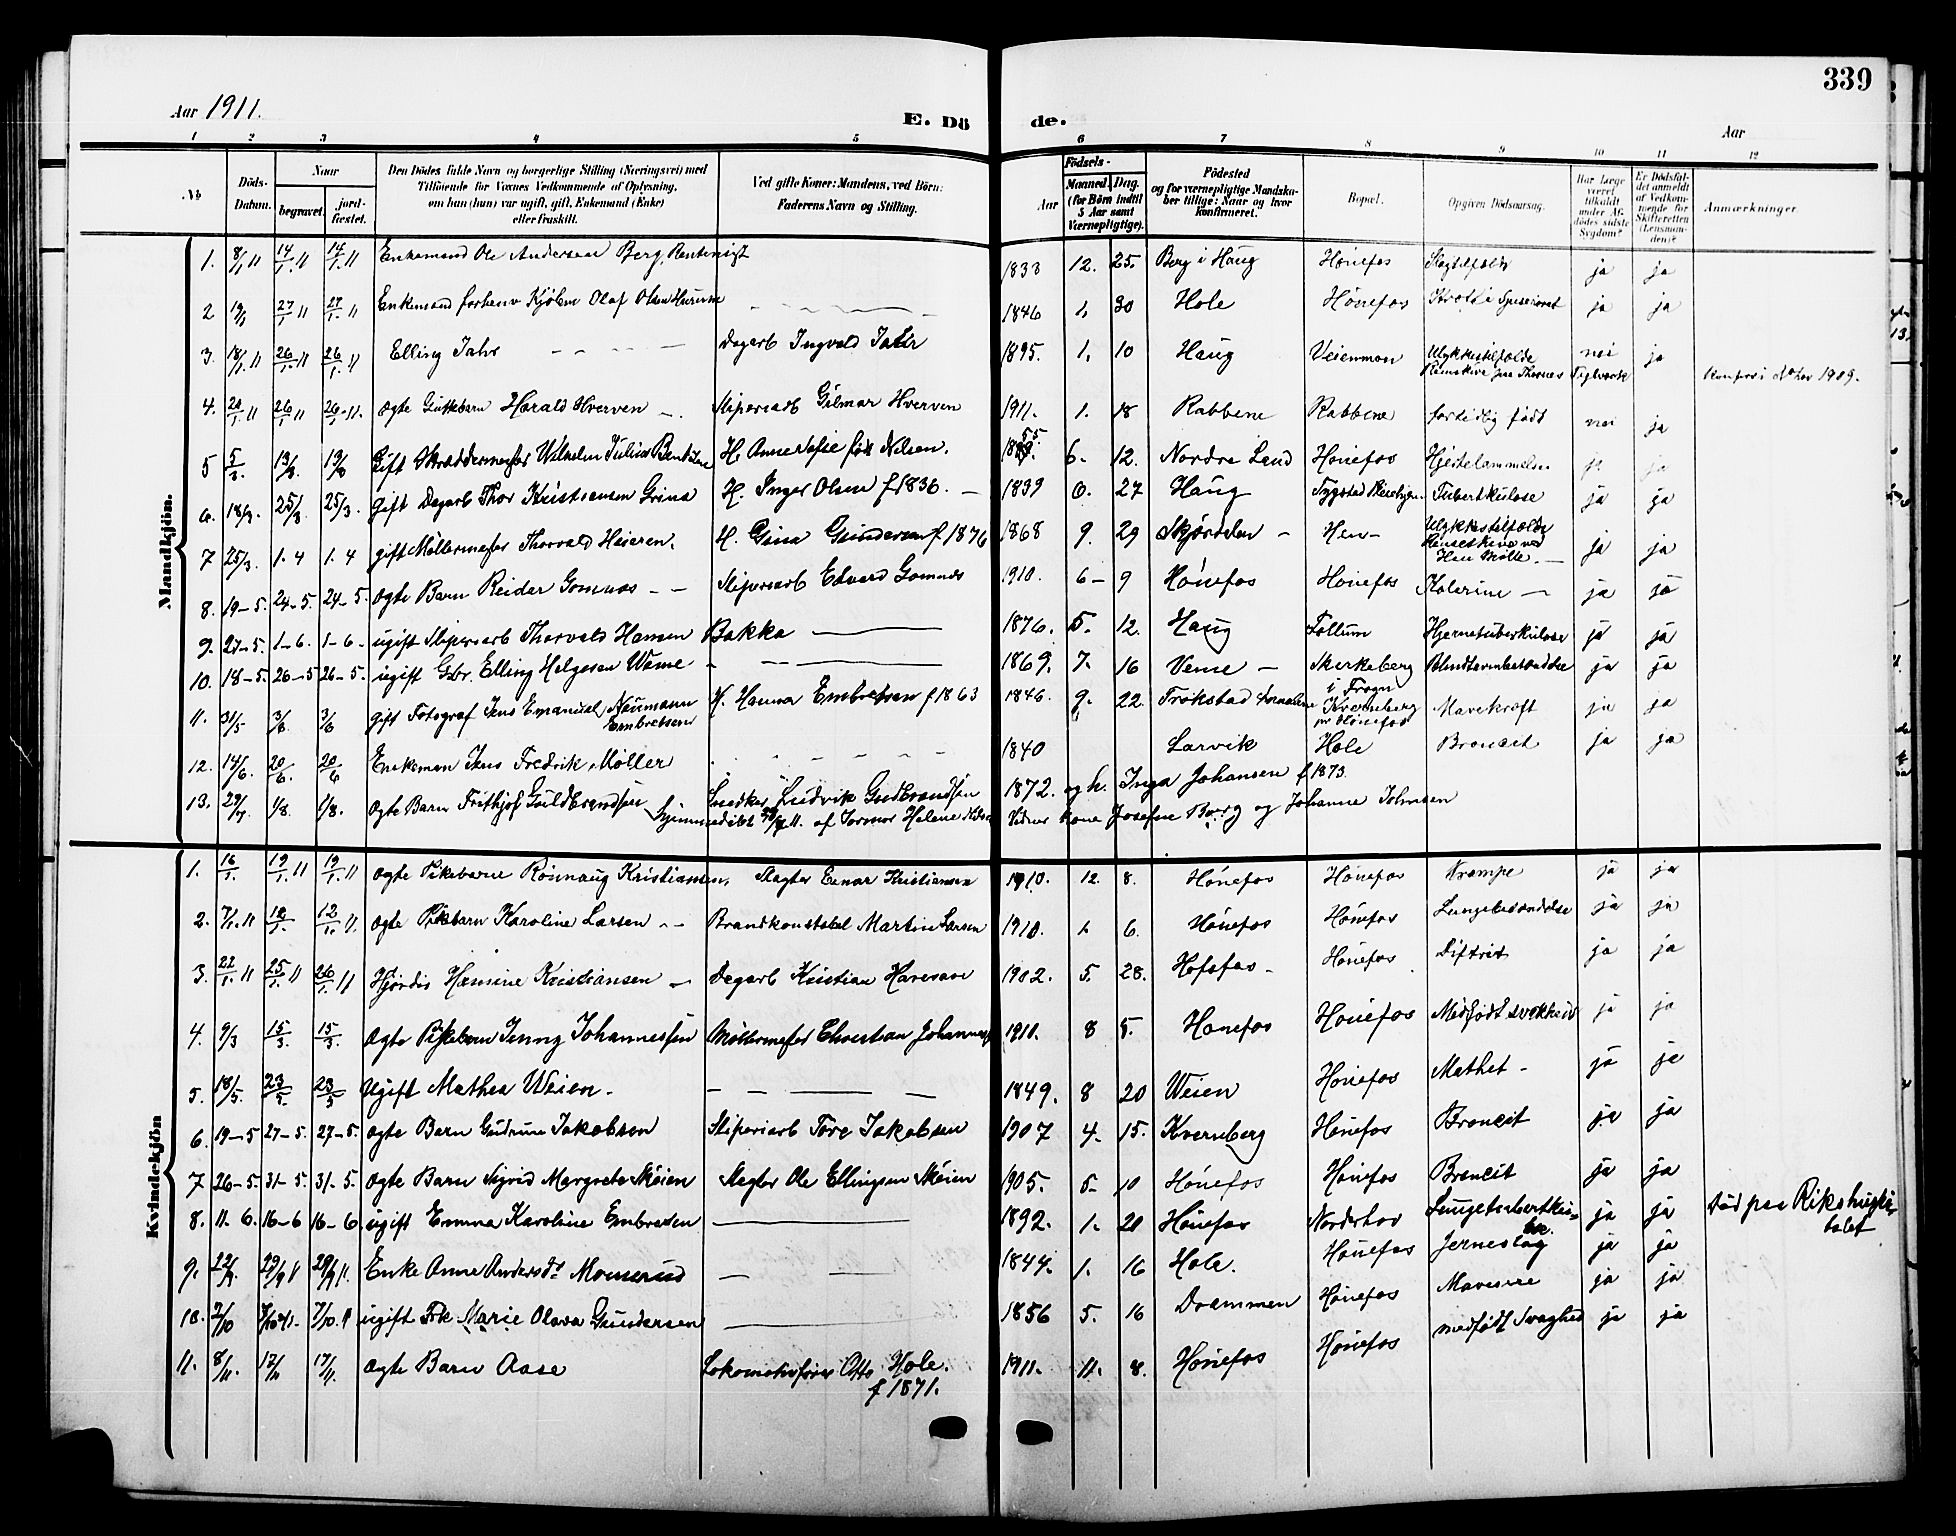 339
Aar 1911.
E. Dö de.
Aar
1 2 3 4 5 6 7 8 9 10 11 12
No
Döds-Datum.
Naar
begravet.
jord-fæstet.
Den Dödes fulde Navn og borgerlige Stilling (Næringsvei) med
Tilföiende for Voxnes Vedkommende af Oplysning,
om han (hun) var ugift, gift, Enkemand (Enke)
eller fraskilt.
Ved gifte Koner: Mandens, ved Börn:
Faderens Navn og Stilling.
Födsels-
Aar
Maaned. Dag.
(for Börn indtil
5 Aar samt
Værnepligtige).
Födested
og for værnepligtige Mandska-
ber tillige: Naar og hvor
konfirmeret.
Bopæl.
Opgiven Dödsaarsag.
Har Læge
været
tilkaldt
under Af-
dödes sidste
Sygdom?
Er Dödsfal-
det anmeldt
af Vedkom-
mende for
Skifteretten
(Lensman-
den)?
Anmærkninger.
Mandkjön.
1. 8/1 11 14/1 11 14/1 11 Enkemand Ole Andersen Berg, Rentenist 1833 12. 25. Berg i Haug Hönefos Slagtilfælde ja ja
2 19/1 27/1 11 27/1 11 Enkemand forhenv Kjöbm Olaf Olsen 1846 1. 30 Hole Hönefos ja ja
3. 18/1 11 26/1 11 26/1 11 Elling Jahr Dagarb Ingvald Jahr 1895. 1. 10 Haug Veienmoen Ulykkestilfælde nei ja
Teglverk Konf. 1909.
4. 20/1 11 26/1 11 26/1 11. ægte Guttebarn Harald Hverven Sliperiarb Gilmar Hverven 1911. 1. 18 Rabbene Rabbene fortidlig födt nei ja
5 5/3 13/3 13/3 Gift Skræddermester Wilhelm Julius Bentsen H. Anne Sofie föd Nilsen. 55 6. 12. Nordre Land Hönefos Hjertelammelse ja ja
6. 18/3. 25/3 25/3. gift Dagarb Thor Kristiansen Grina H. Inger Olsen f 1836. 1839 6. 27 Haug Tubertkulose ja ja
7 25/3. 1. 4 1. 4 gift Möllermester Thorvald Heieren. H. Gina Gundersen f 1876 1868 9. 29 Skjørdalen Hen Ulykkestilfælde
Hen Mölle. ja ja
8. 19-5. 24-5. 24-5. ægte Barn Reidar Gomnæs Sliperiarb Edvard Gomnæs 1910. 6 9 Hönefos Hönefos Kolerine ja ja
9. 27-5. 1-6. 1-6. ugift Sliperiarb Thorvald Hansen Bakka 1876. 5. 12. Haug Follum Hjernetuberkulose ja ja
10. 18-5. 26-5 26-5. ugift Gbr. Elling Helgesen Weme 1869. 7. 16 Veme Skerkeberg
i Frogn Blindtarmbetændelse ja ja
11. 31/5 3/6. 3/6 gift Fotograf Jens Emanuel Neumann
Embretsen H. Hanna Embretsen f 1863 1846. 9. 22. Trøkstad Kvernberg
pr Hönefos Mavekræft ja ja
12. 14/6. 20/6. 20/6 Enkeman Jens Fredrik Möller 1840 Larvik Hole Broncit ja ja
13. 29/7 1/8. 1/8. ægte Barn Frithjof Guldbrandsen Snedker Ludvik Gudbrandsen 1872. og h. Inga Johansen f 1873.
hjemmedöbt 11. af Jormor Helene Vidner kone Josefine Borg og Johanne Johnsen
Kvindekjön
1. 16/1. 19/1. 11 19/1. 11 ægte Pikebarn Rönnaug Kristiansen. Slagter Einar Kristiansen 1910. 12. 8. Hönefos Hönefos Krampe ja ja
2. 7/1. 11 12/1. 12/1. 11. ægte Pikebarn Karoline Larsen Brandkonstabel Martin Larsen 1910. 1. 6. Hönefos Hönefos Lungebetændelse ja ja
3. 22/1. 11 25/1. 11 26/1. 11 Hjördis Hermine Kristiansen Dagarb Kristian Haversen 1902. 5. 28. Hofsfos Hönefos Diftrit ja ja
4. 9/3 15/3. 15/3. ægte Pikebarn Jenny Johannessen Möllermester Christian Johannessen 1910. 8 5. Hönefos Hönefos Medfödt svakheid ja ja
5. 18/5. 23/5. 23/5 Ugift Mathea Weien. 1849. 8 20 Weien Hönefos Mathet ja ja
6. 19-5 27-5. 27-5. ægte Barn Gudrun Jakobsen Sliperiarb Tore Jakobsen 1907 4. 15. Kvernberg Hönefos Broncit ja ja
7 26-5. 31-5. 31-5. ægte Barn Sigrid Margrete Sköien Slagter Ole Ellingsen Sköien 1905. 5. 10 Hönefos Hönefos Broncit ja ja
8. 11. 6. 16-6 16-6 ugift Emma Karoline Embretsen 1892. 1. 20 Hönefos Norderhov Lungetubertku-
lose. ja ja Död paa Rikshuspi-
talet
9. 22/9. 29/9 11 29/9 11. Enke Anne Andersdr Momerud 1844. 1. 16 Hole. Hönefos Jerneslag ja ja
10. 2/10 7/10 11. 7/10. 11 ugift Frk Marie Olava Gundersen 1856 5. 16 Drammen Hönefos Mavesaar ja ja
11. 8/11 17/11 17/11. ægte Barn Aase Lokomotivförer Otto Hole.
f 1871. 1911. 11. 8. Hönefos Hönefos medfödt Svaghed ja ja